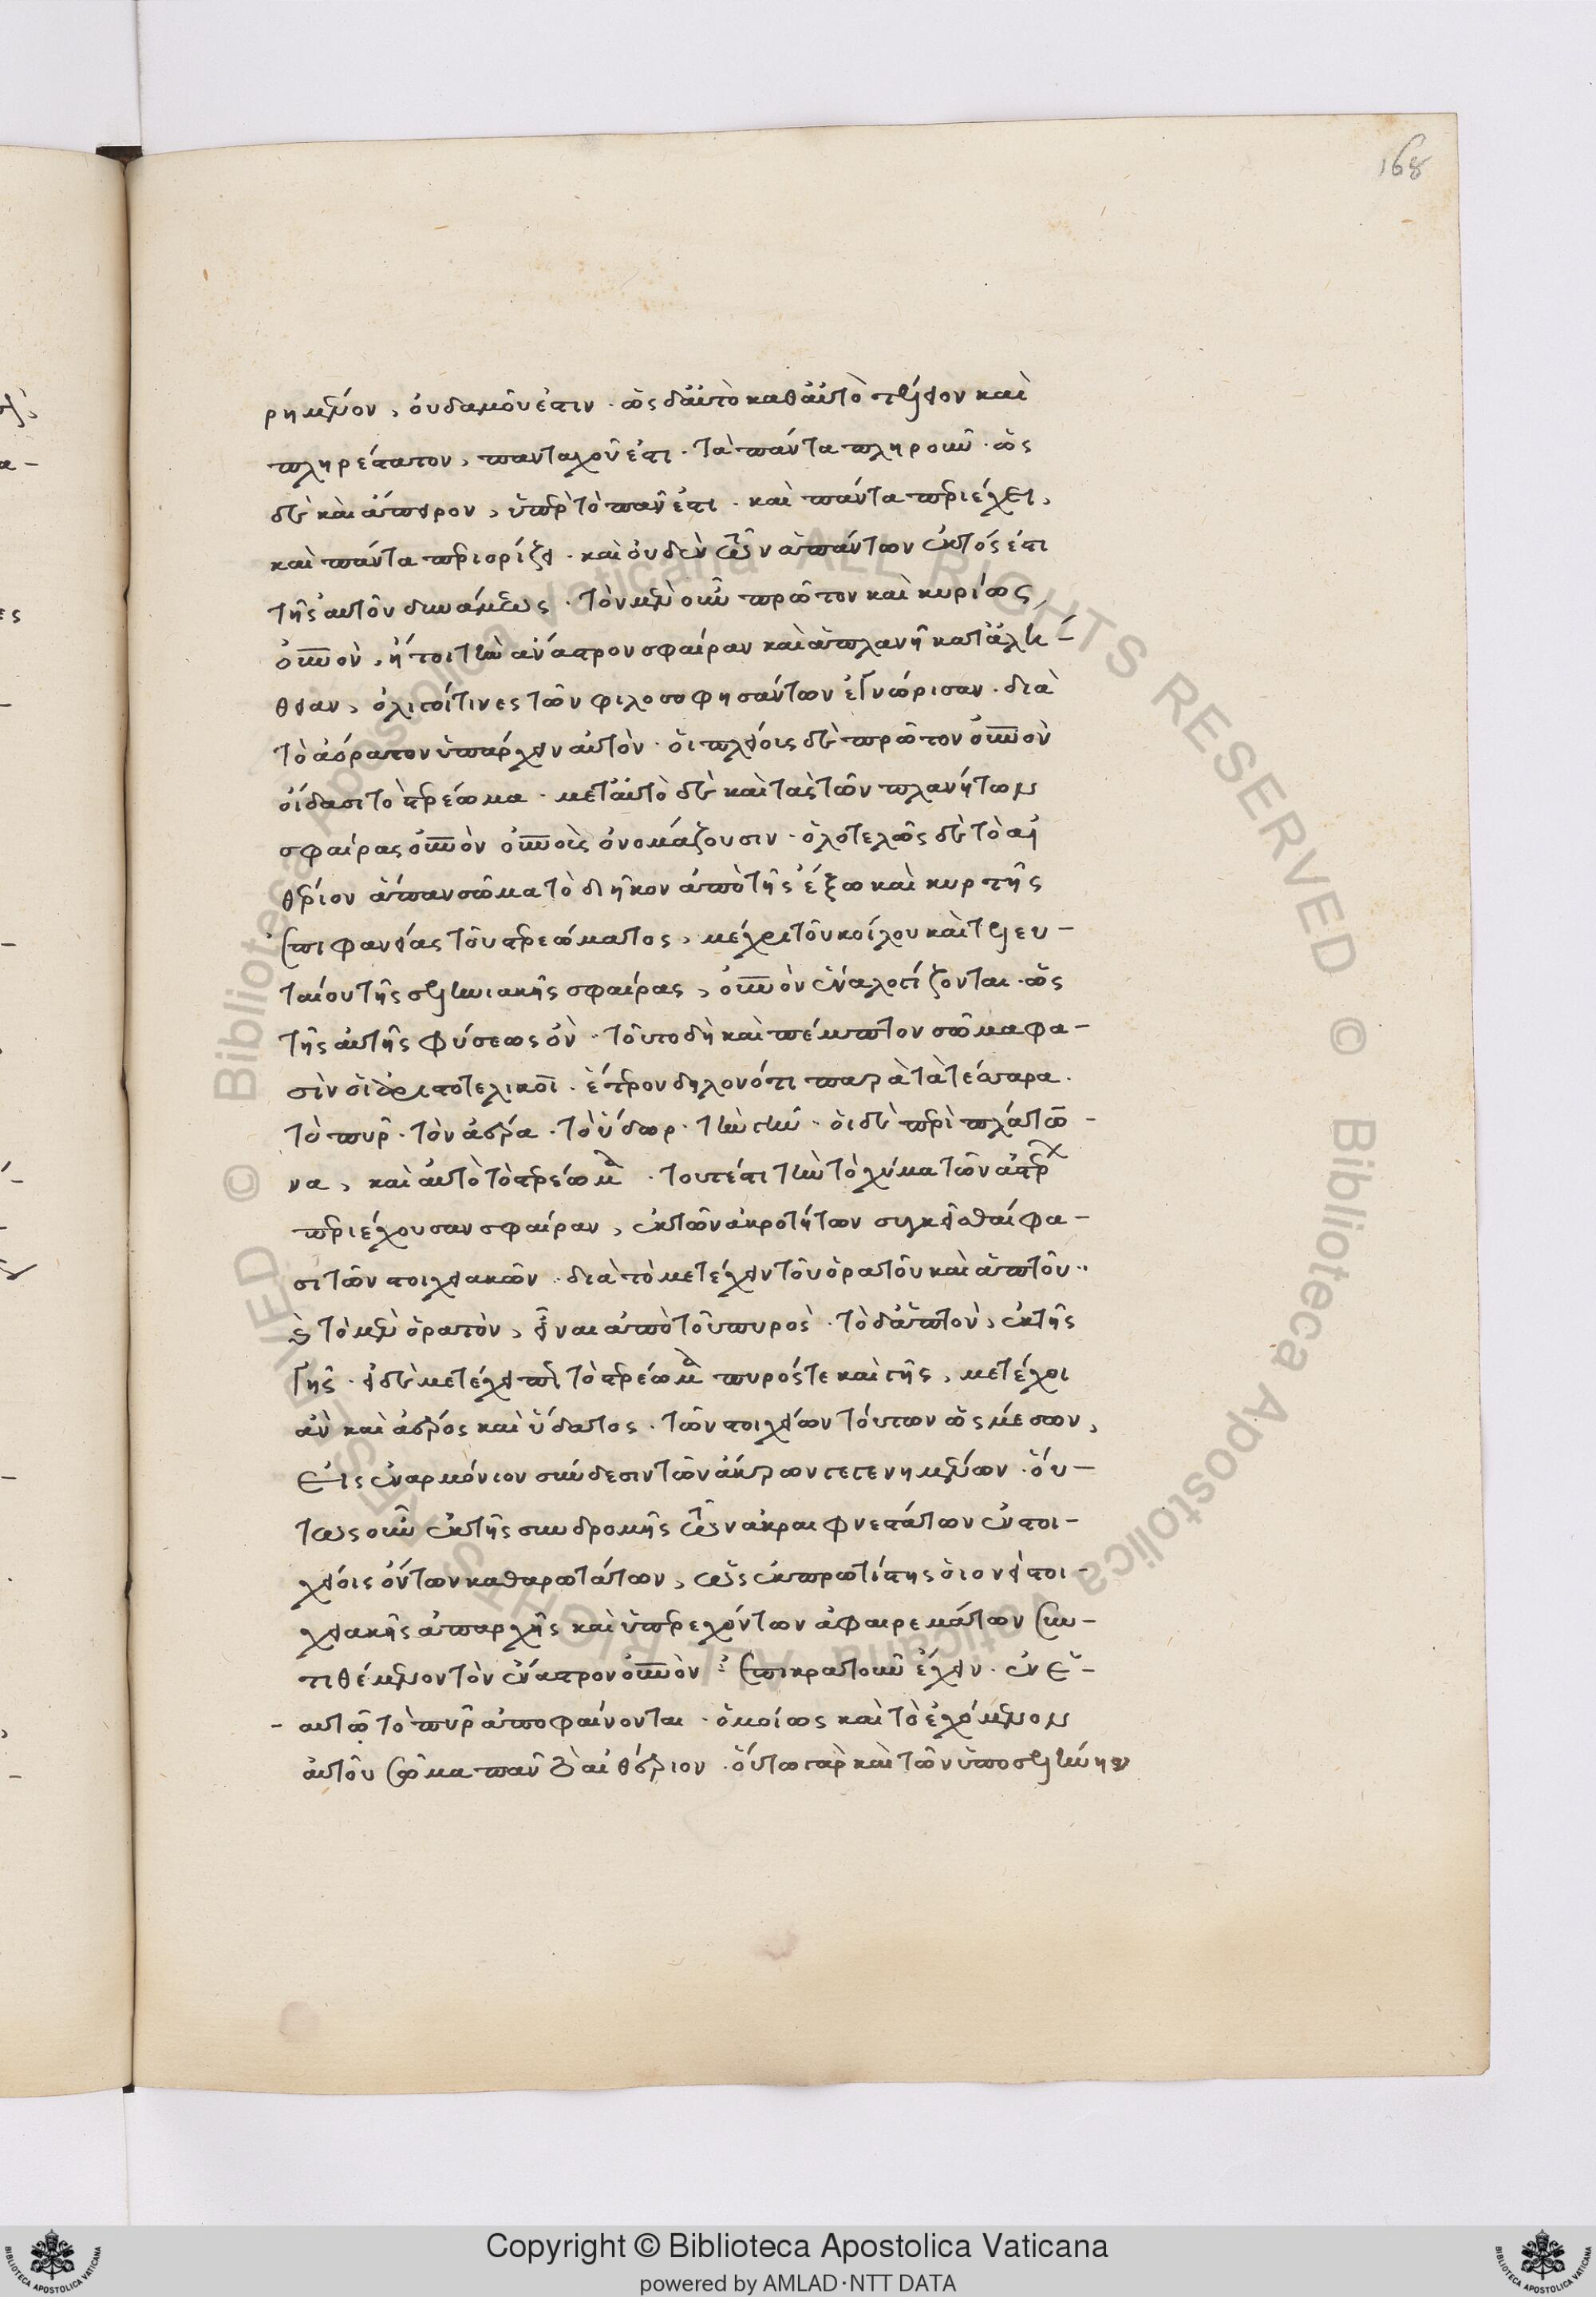 168
ρημένον, οὐδαμοῦ ἐστιν · ὡς δ' αὐτὸ καθ' αὑτὸ τέλειον καὶ
πληρέστατον, πανταχοῦ ἐστι · τὰ πάντα πληροῦν · ὡς
δὲ καὶ ἄπειρον, ὑπὲρ τὸ πᾶν ἐστι · καὶ πάντα περιέχει,
καὶ πάντα περιορίζει · καὶ οὐδὲν τῶν ἁπάντων ἐκτός ἐστι
τῆς αὐτοῦ δυνάμεως · τὸν μὲν οὖν πρῶτον καὶ κυρίως
οὐνὸν, ἤτοι τὴν ἀνάστρον σφαῖραν καὶ ἀπλανῆ κατ' ἀλή-
θειαν, ὀλίγοι τινες τῶν φιλοσοφησάντων ἐγνώρισαν · διὰ
τὸ ἀόρατον ὑπάρχειν αὐτὸν · οἱ πλείους δὲ πρῶτον οὐνὸν
οἴδασι τὸ στερέωμα · μετ' αὐτὸ δὲ καὶ τὰς τῶν πλανήτων
σφαίρας οὐνὸν οὐνοῖς ὀνομάζουσιν · ὁλοτελῶς δὲ τὸ αἰ
θέριον ἅπαν σῶμα τὸ διῆκον ἀπὸ τῆς ἔξω καὶ κυρτῆς
ἐπιφανείας τοῦ στερεώματος, μέχρι τοῦ κοίλου καὶ τελευ-
ταίου τῆς σεληνιακῆς σφαίρας, οὐνὸν ἐναλογίζονται · ὡς
τῆς αὐτῆς φύσεως ὂν · τοῦτο δὴ καὶ πέμπτον σῶμα φα-
σὶν οἱ ἀριστοτελικοὶ · ἕτερον δηλονότι παρὰ τὰ τέσσαρα ·
τὸ πῦρ · τὸν ἀέρα · τὸ ὕδωρ · τὴν γῆν · οἱ δὲ περὶ πλάτω-
να, καὶ αὐτὸ τὸ στερέωμα · τουτέστι τὴν τὸ χύμα τῶν ἀστέρων
περιέχουσαν σφαῖραν, ἐκ τῶν ἀκροτήτων συγκεῖσθαί φα-
σι τῶν στοιχειακῶν · διὰ τὸ μετέχειν τοῦ ὁρατοῦ καὶ ἁπτοῦ ··
καὶ τὸ μὲν ὁρατὸν, εἶναι ἀπὸ τοῦ πυρὸς · τὸ δ' ἁπτὸν, ἐκ τῆς
γῆς · εἰ δὲ μετέχει περ τὸ στερέωμα πυρός τε καὶ γῆς, μετέχοι
ἂν καὶ ἀέρος καὶ ὕδατος · τῶν στοιχείων τούτων ὡς μέσων,
εἰς ἐναρμόνιον σύνδεσιν τῶν ἄκρων γεγενημένων · οὕ-
τως οὖν ἐκ τῆς συνδρομῆς τῶν ἀκραιφνεστάτων ἐν στοι-
χείοις ὄντων καθαρωτάτων, ὡς ἐκ πρωτίστης οἱονεὶ στοι-
χειακῆς ἀπαρχῆς καὶ ὑπερεχόντων ἀφαιρεμάτων συν-
τιθέμενον τὸν ἐνάστρον οὐνὸν ἐπικρατοῦν ἔχειν · ἐν ἑ-
- αυτῷ τὸ πῦρ ἀποφαίνονται · ὁμοίως καὶ τὸ ἐχόμενον
αὐτοῦ σῶμα πᾶν τὸ αἰθέριον · οὕτω γὰρ καὶ τῶν ὑπὸ σελήνην